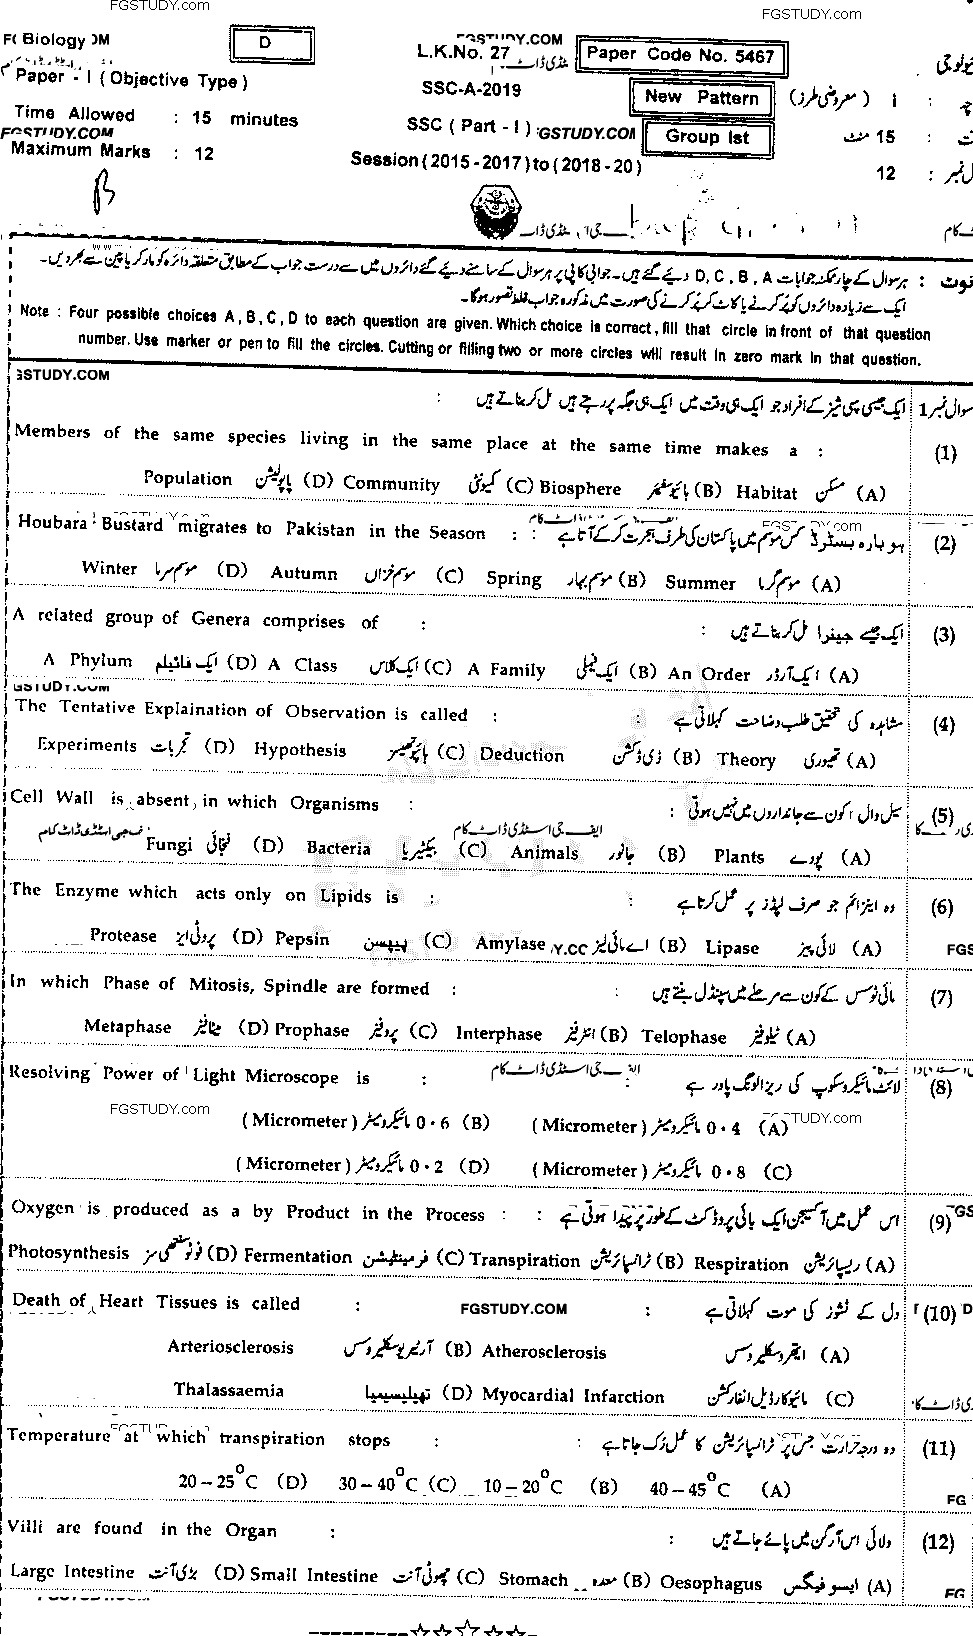 FGSTUDY.com
FGSTUDY.com
Biology
D
FGSTUDY.COM
L.K.No. 27
Paper Code No. 5467
Paper - I ( Objective Type )
SSC-A-2019
New Pattern
I ( معروضی طرز )
Time Allowed : 15 minutes
SSC ( Part - I )
GSTUDY.COM
Group Ist
15 منٹ
FGSTUDY.COM
Maximum Marks : 12
Session ( 2015 - 2017 ) to ( 2018 - 20 )
12
نوٹ : ہر سوال کے چار ممکنہ جوابات D , C , B , A دیئے گئے ہیں۔ جوابی کاپی پر ہر سوال کے سامنے دیئے گئے دائروں میں سے درست جواب کے مطابق متعلقہ دائرہ کو مارکر یا پین سے بھر دیں۔
ایک سے زیادہ دائروں کو پُر کرنے یا کاٹ کر پُر کرنے کی صورت میں مذکورہ جواب غلط تصور ہوگا۔
Note : Four possible choices A , B , C , D to each question are given. Which choice is correct , fill that circle in front of that question
number. Use marker or pen to fill the circles. Cutting or filling two or more circles will result in zero mark in that question.
GSTUDY.COM
سوال نمبر 1 ایک جیسی سپی شیز کے افراد جو ایک ہی وقت میں ایک ہی جگہ پر رہتے ہیں مل کر بناتے ہیں :
(1) Members of the same species living in the same place at the same time makes a :
Population پاپولیشن (D) Community کمیونٹی (C) Biosphere بائیوسفیئر (B) Habitat مسکن (A)
(2) Houbara Bustard migrates to Pakistan in the Season : ہوبارہ بسٹرڈ کس موسم میں پاکستان کی طرف ہجرت کر کے آتا ہے :
FGSTUDY.com
Winter موسم سرما (D) Autumn موسم خزاں (C) Spring موسم بہار (B) Summer موسم گرما (A)
(3) A related group of Genera comprises of : ایک جیسے جینرا مل کر بناتے ہیں :
A Phylum ایک فائیلم (D) A Class ایک کلاس (C) A Family ایک فیملی (B) An Order ایک آرڈر (A)
GSTUDY.COM
(4) The Tentative Explaination of Observation is called : مشاہدہ کی تحقیق طلب وضاحت کہلاتی ہے :
Experiments تجربات (D) Hypothesis ہائپوتھیسز (C) Deduction ڈی ڈکشن (B) Theory تھیوری (A)
(5) Cell Wall is absent in which Organisms : سیل وال کون سے جانداروں میں نہیں ہوتی :
ایف جی اسٹڈی ڈاٹ کام
Fungi فنجائی (D) Bacteria بیکٹیریا (C) Animals جانور (B) Plants پودے (A)
(6) The Enzyme which acts only on Lipids is : وہ اینزائم جو صرف لپڈز پر عمل کرتا ہے :
Protease پروٹی ایز (D) Pepsin پیپسن (C) Amylase اے مائی لیز (B) Lipase لائی پیز (A)
FGS
(7) In which Phase of Mitosis, Spindle are formed : مائی ٹوسس کے کون سے مرحلے میں سپنڈل بنتے ہیں :
Metaphase میٹا فیز (D) Prophase پروفیز (C) Interphase انٹرفیز (B) Telophase ٹیلوفیز (A)
(8) Resolving Power of Light Microscope is : لائٹ مائیکروسکوپ کی ریزالونگ پاور ہے :
FGSTUDY.com
( Micrometer ) مائیکرومیٹر 0·6 (B) ( Micrometer ) مائیکرومیٹر 0·4 (A)
FGSTUDY.com
( Micrometer ) مائیکرومیٹر 0·2 (D) ( Micrometer ) مائیکرومیٹر 0·8 (C)
(9) Oxygen is produced as a by Product in the Process : اس عمل میں آکسیجن ایک بائی پروڈکٹ کے طور پر پیدا ہوتی ہے :
Photosynthesis فوٹوسنتھی سز (D) Fermentation فرمینٹیشن (C) Transpiration ٹرانسپائریشن (B) Respiration ریسپائریشن (A)
(10) Death of Heart Tissues is called : FGSTUDY.COM دل کے ٹشوز کی موت کہلاتی ہے :
Arteriosclerosis آرٹیریوسکلیروسس (B) Atherosclerosis ایتھروسکلیروسس (A)
Thalassaemia تھیلیسیمیا (D) Myocardial Infarction مائیوکارڈیل انفارکشن (C)
(11) Temperature at which transpiration stops : وہ درجہ حرارت جس پر ٹرانسپائریشن کا عمل رُک جاتا ہے :
20 – 25°C (D) 30 – 40°C (C) 10 – 20°C (B) 40 – 45°C (A)
FG
(12) Villi are found in the Organ : ولائی اس آرگن میں پائے جاتے ہیں :
Large Intestine بڑی آنت (D) Small Intestine چھوٹی آنت (C) Stomach معدہ (B) Oesophagus ایسوفیگس (A)
FG